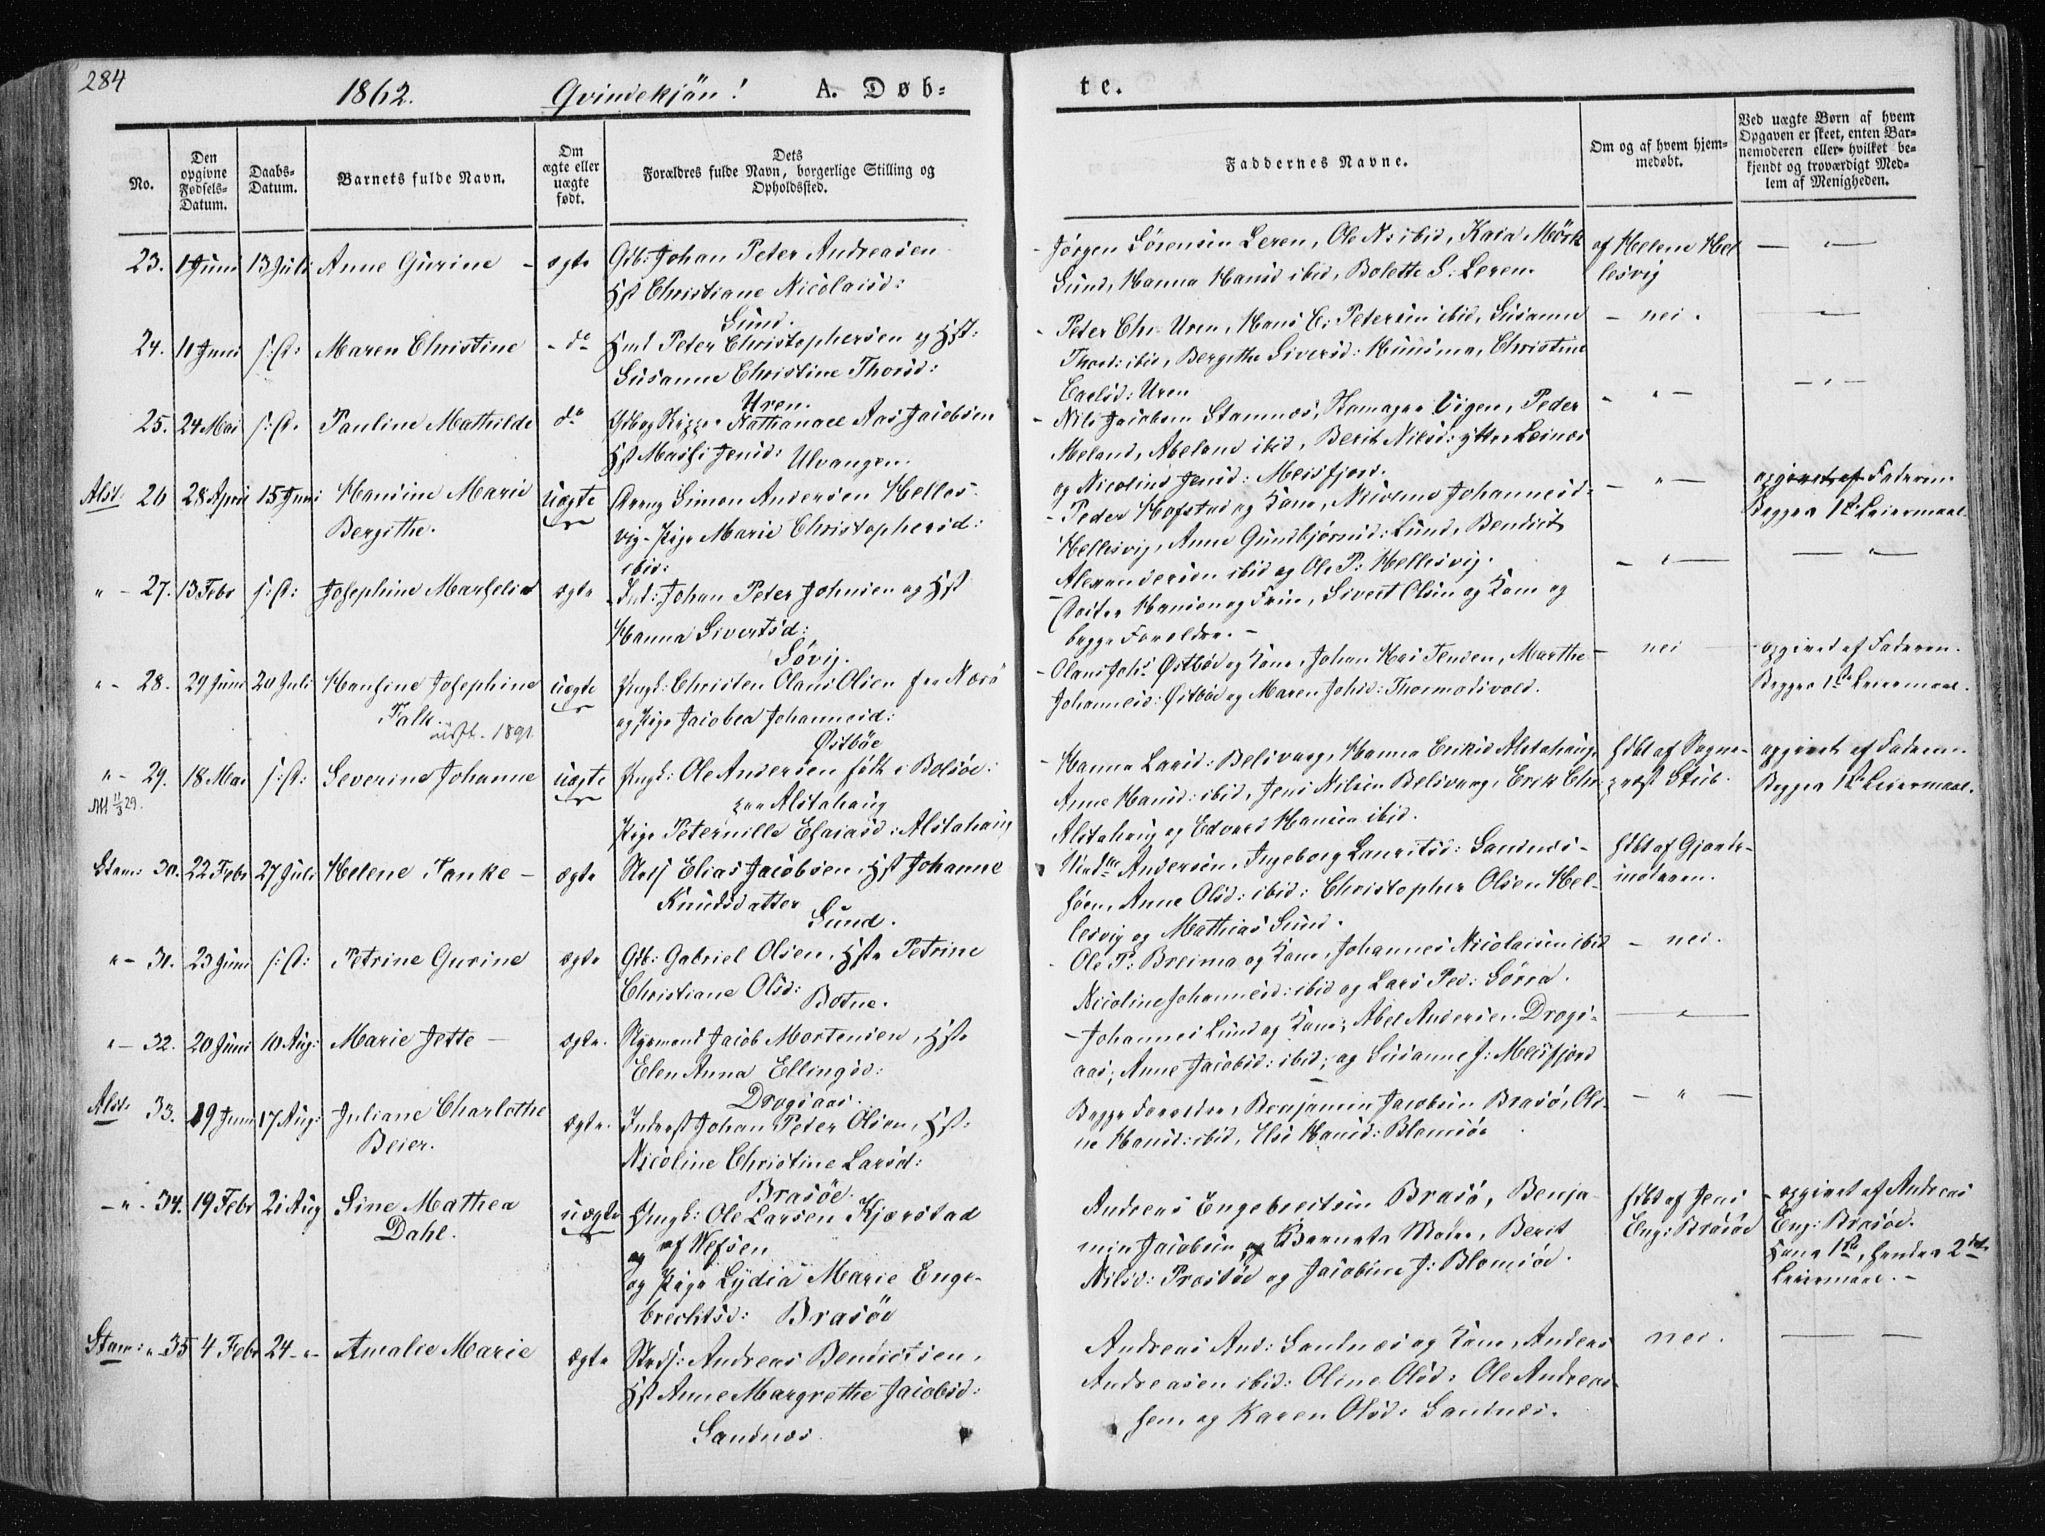 284
1862. Qvindekjön! A. Døb= te.
No.
Den opgivne Fødsels-Datum.
Daabs-Datum.
Barnets fulde Navn.
Om ægte eller uægte født.
Dets Forældres fulde Navn, borgerlige Stilling og Opholdssted.
Faddernes Navne.
Om og af hvem hjemmedøbt.
Ved uægte Børn af hvem Opgaven er skeet, enten Barnemoderen eller hvilket bekjendt og troværdigt Medlem af Menigheden.
23. 1 Juni 13 Juli Anne Gurine - ægte Gdb: Johan Peter Andreasen
Hst Christiane Nicolaisd:
Sund.
- Jørgen Sörensen Leren, Ole N: ibid, Kaia Mörk
Sund, Hanna Hansd ibid, Bolette S: Leren.
af Helene Hel
lesvig
24. 11 Juni s: D: Maren Christine - do Hmd Peter Christophersen og Hst:
Susanne Christine Thorsd:
Uren.
- Peter Chr: Uren, Hans C: Petersen ibid, Susanne
Thord: ibid, Bergithe Siversd: Huusmo, Christine
Carlsd: Uren
- nei.
25. 24 Mai s: D. Pauline Mathilde do Gdbg Nathanael Aas Jacobsen
Hst Jensd: Ulvangen.
- Nils Jacobsen Stamnæs, Vigen, Peder
Meland, Abelone ibid, Berit Nilsd: ytter Leines
og Nicoline Jensd: Meisfjord.
Alst: 26 28 April 15 Juni Hansine Marie
Bergithe.
uægte
Simon Andersen Helles-
vig - Pige Marie Christophersd:
ibid:
- Peder Hofstad og Kone, Nicoline Johannesd:
Hellesvig, Anne Gundbjørnsd: Lund, Bendick
Alexandersen ibid og Ole P: Hellesvig.
opgivet af Faderen.
Begges 1ste Leiermaal.
" - 27. 13 Febr s: D: Josephine Marselia ægte Ind: Johan Peter Johnsen og Hst
Hanna Sivertsd:
Sövig.
- Hansen og Frue, Sivert Olsen og Kone og
begge Forældre. -
" - 28. 29 Juni 20 Juli Hansine Josephine
Falk.
1891
uægte
Ungk: Christen Olaus Olsen fra Næsö
og Pige Jacobea Johannesd:
Östböe
- Olaus Johs Östböe og Kone, Johan Jensen, Marthe
Johannesd: Östböe og Maren Johsd: Thormodsvold.
- nei
- opgivet af Faderen.
Begges 1ste Leiermaal.
" - 29. 18 Mai s: D: Severine Johanne uægte Ungk: Ole Andersen födt i Bolsöe:
paa Alstahaug
Pige Peternille Esaiasd: Alstahaug
- Hanna Larsd: Belsvaag, Hanna Eriksd Alstahaug,
Anne Hansd: ibid, Jens Nilsen Belsvaag, Erik Chr:
Alstahaug og Edvard Hansen ibid.
hdbt af Sogne-
præst Stub.
opgivet af Faderen.
Begges 1ste Leiermaal.
Stam: 30. 22 Febr 27 Juli Helene Tanke - ægte Elias Jacobsen, Hst Johanne
Knudsdatter
Sund.
Andersen, Ingeborg Lauritsd: Sandnæs-
söen, Anne Olsd: ibid: Christopher Olsen Hel-
lesvig og Mathias Sund.
hdbt af Gjorde-
moderen.
" - 31. 23 Juni s: D: Petrine Gurine ægte Gdb: Gabriel Olsen, Hste Petrine
Christiane Olsd:
Botne.
- Ole P: Breimo og Kone, Johannes Nicolaisen ibid
Nicoline Johannesd: ibid og Lars Ped: Sörra.
- nei.
" - 32. 20 Juni 10 Aug: Marie Jette - ægte. Styrmand Jacob Mortensen, Hste
Elen Anna Ellingsd:
Dragsaas.
- Johannes Lund og Kone, Abel Andersen Drags-
aas; Anne Jacobsd: ibid; og Susanne J: Meisfjord
Alst: 33. 19 Juni 17 Aug: Juliane Charlothe
Beier.
ægte. Inderst Johan Peter Olsen, Hst:
Nicoline Christine Larsd:
Brasöe.
Begge Forældre, Benjamin Jacobsen Brasö, Ol-
ne Hansd: ibid, Else Hansd: Blomsöe
- " - 34. 19 Febr 21 Aug Sine Mathea
Dahl.
uægte Ungk: Ole Larsen Kjærstad
af Vefsen
og Pige Lydia Marie Enge-
brechtsd: Brasöe
Andreas Engebreitsen Brasö, Benja-
min Jacobsen og Barnets Moder, Berit
Nilsd: Præstöe og Jacobine J: Blomsöe.
hdbt af Jens
Eng: Brasöe
- opgivet af Andreas
Eng: Brasöe.
Hans 1ste, hendes 2det
Leiermaal. -
Stam: " 35 4 Febr 24 - " - Amalie Marie ægte Andreas Bendictsen,
Hst Anne Margrethe Jacobsd:
Sandnæs.
Andreas And: Sandnæs og Kone, Anders
Andreasen ibid: Oline Olsd: Ole Andreas-
sen, og Karen Olsd: Sandnæs.
nei.